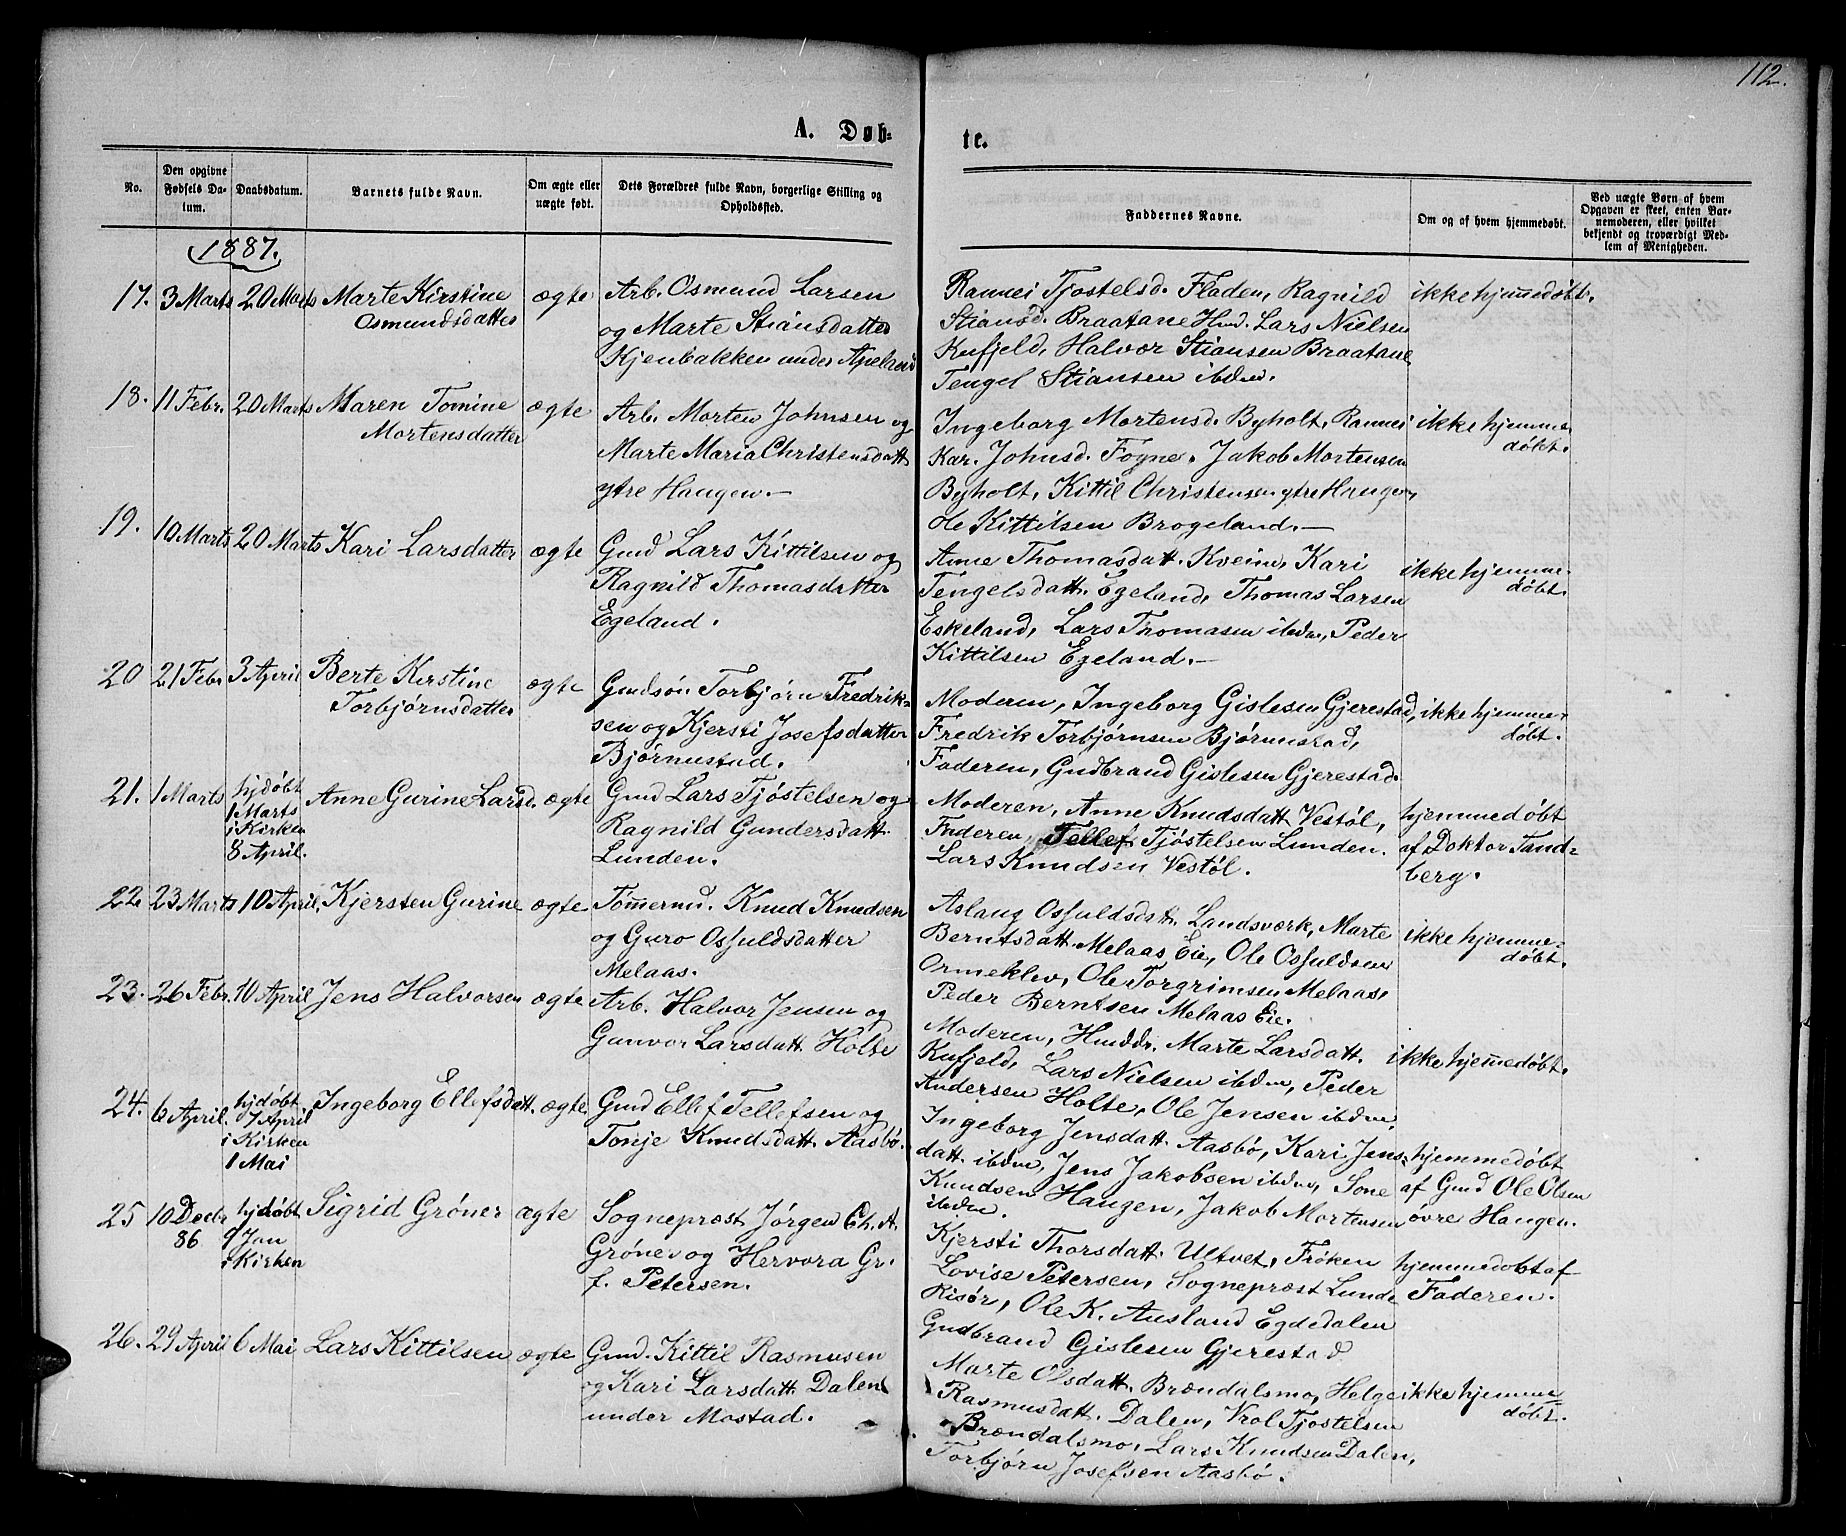 112.
A. Døb-
te.
No.
Den opgivne
Fødsels Da-
tum.
Daabsdatum.
Barnets fulde Navn.
Om ægte eller
uægte født.
Dets Forældres fulde Navn, borgerlige Stilling og
Opholdssted.
Faddernes Navne.
Om og af hvem hjemmedøbt.
Ved uægte Børn af hvem
Opgaven er skeet, enten Bar-
nemoderen, eller hvilket
bekjendt og troværdigt Med-
lem af Menigheden.
1887.
17.
3 Marts
20 Marts
Marte Kirstine
Osmundsdatter
ægte
Arb. Osmund Larsen
og Marte Stiansdatter
Kjenbakken under Apeland
Rannei Tjostelsd. Fladen, Ragnild
Stiansd. Braatane Hmd. Lars Nielsen
Kufjeld, Halvor Stiansen Braatane
Tengel Stiansen ibdm.
ikke hjemmedøbt.
18.
11 Febr.
20 Marts
Maren Tomine
Mortensdatter
ægte
Arb. Morten Johnsen og
Marte Maria Christensdatt
ytre Haugen.—
Ingeborg Mortensd. Byholt, Rannei
Kar. Johnsd. Fogne, Jakob Mortensen
Byholt, Kittil Christensen ytre Haugen,
Ole Kittilsen Brogeland.—
ikke hjemme-
døbt.
19.
10 Marts
20 Marts
Kari Larsdatter
ægte
Gmd Lars Kittilsen og
Ragnild Thomasdatter
Egeland.
Anne Thomasdatt. Kveim, Kari
Tengelsdatt. Egeland, Thomas Larsen
Eskeland, Lars Thomasen ibdm, Peder
Kittilsen Egeland.—
ikke hjemme-
døbt.
20
21 Febr
3 April
Berte Kirstine
Torbjørnsdatter
ægte
Gmdsøn Torbjørn Fredrik-
sen og Kjersti Josefsdatter
Bjørnustad.
Moderen, Ingeborg Gislesen Gjerestad,
Fredrik Torbjørnsen Bjørnustad,
Faderen, Gudbrand Gislesen Gjerestad.
ikke hjemme-
døbt.
21.
1 Marts
hjdøbt
1 Marts
i Kirken
8 April.
Anne Gurine Larsd.
ægte
Gmd Lars Tjøstelsen og
Ragnild Gundersdatt.
Lunden.
Moderen, Anne Knudsdatt Vestøl,
Faderen, Tellef Tjøstelsen Lunden.
Lars Knudsen Vestøl.
hjemmedøbt
af Doktor Tand-
berg.
22.
23 Marts
10 April.
Kjersten Gurine
ægte
Tømermd. Knud Knudsen
og Guro Osfuldsdatter
Melaas.
Aslaug Osfuldsdatt. Landsverk, Marte
Berntsdatt. Melaas Eie, Ole Osfuldsen
Ormeklev, Ole Torgrimsen Melaas,
Peder Berntsen Melaas Eie.
ikke hjemme-
døbt.
23.
26 Febr.
10 April
Jens Halvorsen
ægte
Arb. Halvor Jensen og
Gunvor Larsdatt. Holte
Moderen, Hmddr. Marte Larsdatt.
Kufjeld, Lars Nielsen ibdm, Peder
Andersen Holte, Ole Jensen ibdm,
ikke hjemmedøbt.
24.
6 April.
hjdøbt
7 April
i Kirken
1 Mai
Ingeborg Ellefsdatt.
ægte
Gmd Ellef Tellefsen og
Tonje Knudsdatt. Aasbø.
Ingeborg Jensdatt. Aasbø, Kari Jens-
datt. ibdm, Jens Jakobsen ibdm, Sone
Knudsen Haugen, Jakob Mortensen
ibdm.
hjemmedøbt
af Gmd Ole Olsen
øvre Haugen.
25
10 Decbr
86
hjdøbt
9 Jan
i Kirken
Sigrid Grøner
ægte
Sogneprest Jørgen Ch. A.
Grøner og Hervora Gr.
f. Petersen.
Kjersti Thorsdatt. Ultvet, Frøken
Lovise Petersen, Sogneprest Lunde
Risør, Ole K. Ausland Egdedalen
Gudbrand Gislesen Gjerestad
hjemmedøbt af
Faderen.
26.
29 April
6 Mai
Lars Kittilsen
ægte
Gmd. Kittil Rasmusen
og Kari Larsdatt. Dalen
under Mostad.
Marte Olsdatt. Brændalsmo, Helge
Rasmusdatt. Dalen, Vrol Tjostelsen
Brændalsmo, Lars Knudsen Dalen,
Torbjørn Josefsen Aasbø.
ikke hjemme
døbt.